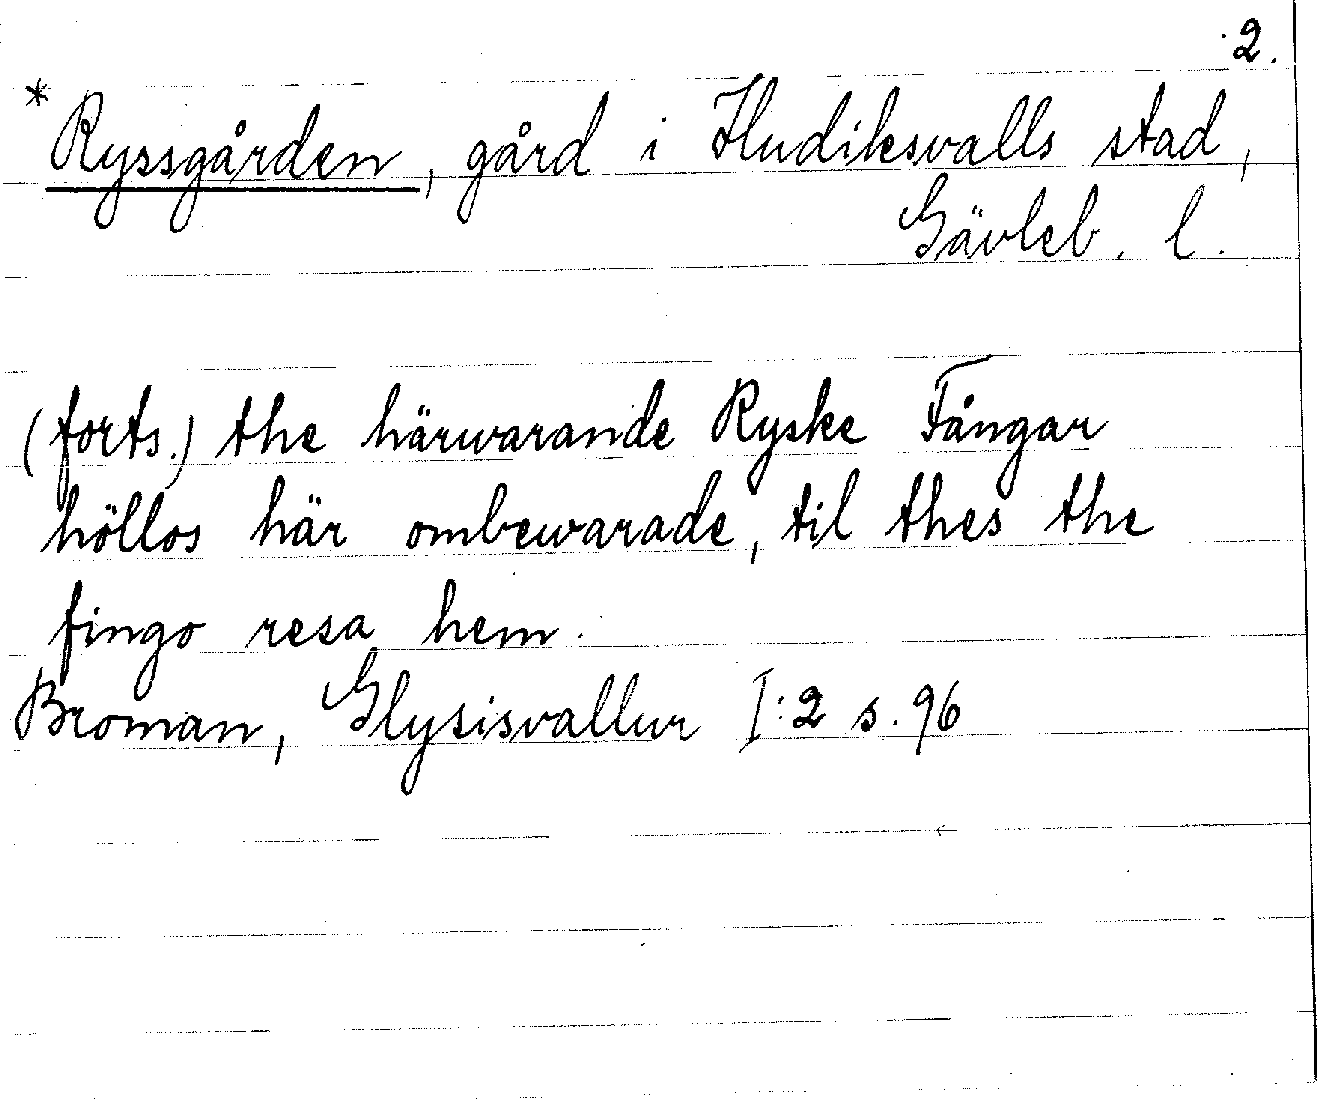 2.
* Ryssgården, gård i Hudiksvalls stad,
Gävleb. l.
(forts.) the härwarande Ryske Fångar
höllos här ombewarade, til thes the
fingo resa hem.
Broman, Glysisvallur I:2 s. 96